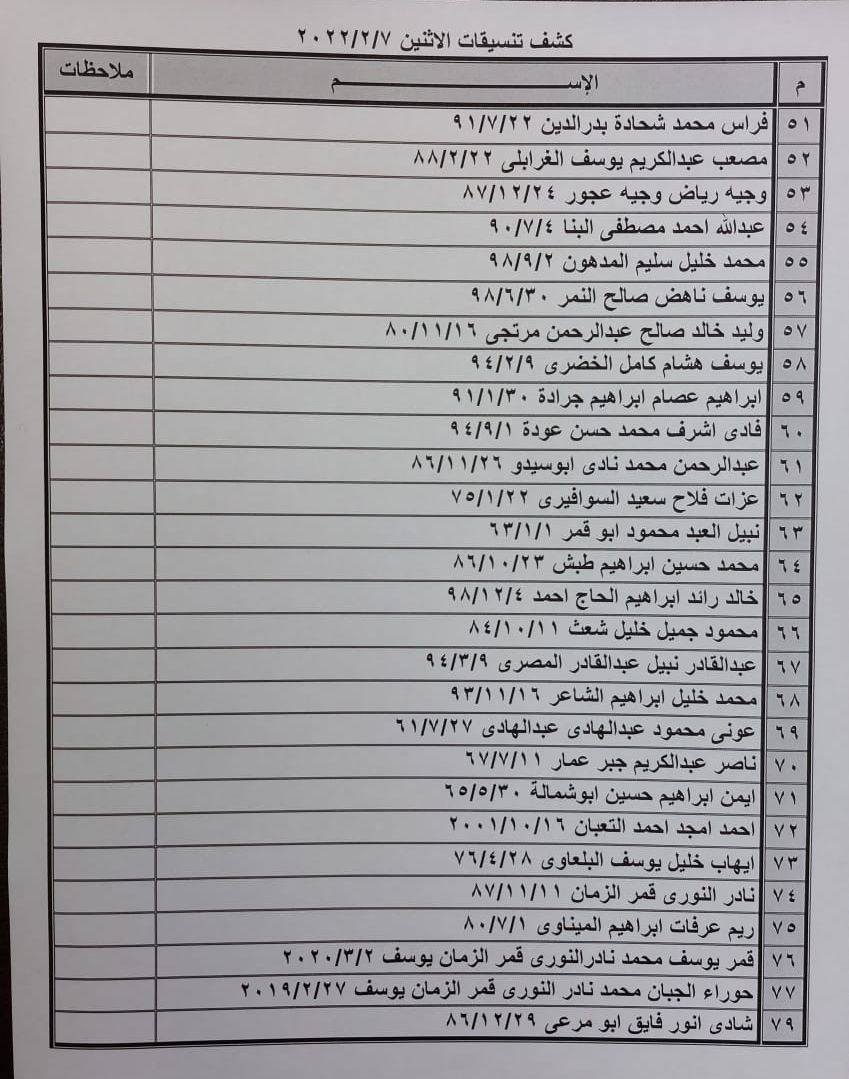 كشف تنسيقات الاثنين ٢٠٢٢/٢/٧
م الإســـــــم ملاحظات
٥١ فراس محمد شحادة بدرالدين ٩١/٧/٢٢
٥٢ مصعب عبدالكريم يوسف الغرابلى ٨٨/٢/٢٢
٥٣ وجيه رياض وجيه عجور ٨٧/١٢/٢٤
٥٤ عبدالله احمد مصطفى البنا ٩٠/٧/٤
٥٥ محمد خليل سليم المدهون ٩٨/٩/٢
٥٦ يوسف ناهض صالح النمر ٩٨/٦/٣٠
٥٧ وليد خالد صالح عبدالرحمن مرتجى ٨٠/١١/١٦
٥٨ يوسف هشام كامل الخضرى ٩٤/٢/٩
٥٩ ابراهيم عصام ابراهيم جرادة ٩١/١/٣٠
٦٠ فادى اشرف محمد حسن عودة ٩٤/٩/١
٦١ عبدالرحمن محمد نادى ابوسيدو ٨٦/١١/٢٦
٦٢ عزات فلاح سعيد السوافيرى ٧٥/١/٢٢
٦٣ نبيل العبد محمود ابو قمر ٦٣/١/١
٦٤ محمد حسين ابراهيم طبش ٨٦/١٠/٢٣
٦٥ خالد رائد ابراهيم الحاج احمد ٩٨/١٢/٤
٦٦ محمود جميل خليل شعث ٨٤/١٠/١١
٦٧ عبدالقادر نبيل عبدالقادر المصرى ٩٤/٣/٩
٦٨ محمد خليل ابراهيم الشاعر ٩٣/١١/١٦
٦٩ عونى محمود عبدالهادى عبدالهادى ٦١/٧/٢٧
٧٠ ناصر عبدالكريم جبر عمار ٦٧/٧/١١
٧١ ايمن ابراهيم حسين ابوشمالة ٦٥/٥/٣٠
٧٢ احمد امجد احمد التعبان ٢٠٠١/١٠/١٦
٧٣ ايهاب خليل يوسف البلعاوى ٧٦/٤/٢٨
٧٤ نادر النورى قمر الزمان ٨٧/١١/١١
٧٥ ريم عرفات ابراهيم الميناوى ٨٠/٧/١
٧٦ قمر يوسف محمد نادرالنورى قمر الزمان يوسف ٢٠٢٠/٣/٢
٧٧ حوراء الجبان محمد نادر النورى قمر الزمان يوسف ٢٠١٩/٢/٢٧
٧٩ شادى انور فايق ابو مرعى ٨٦/١٢/٢٩